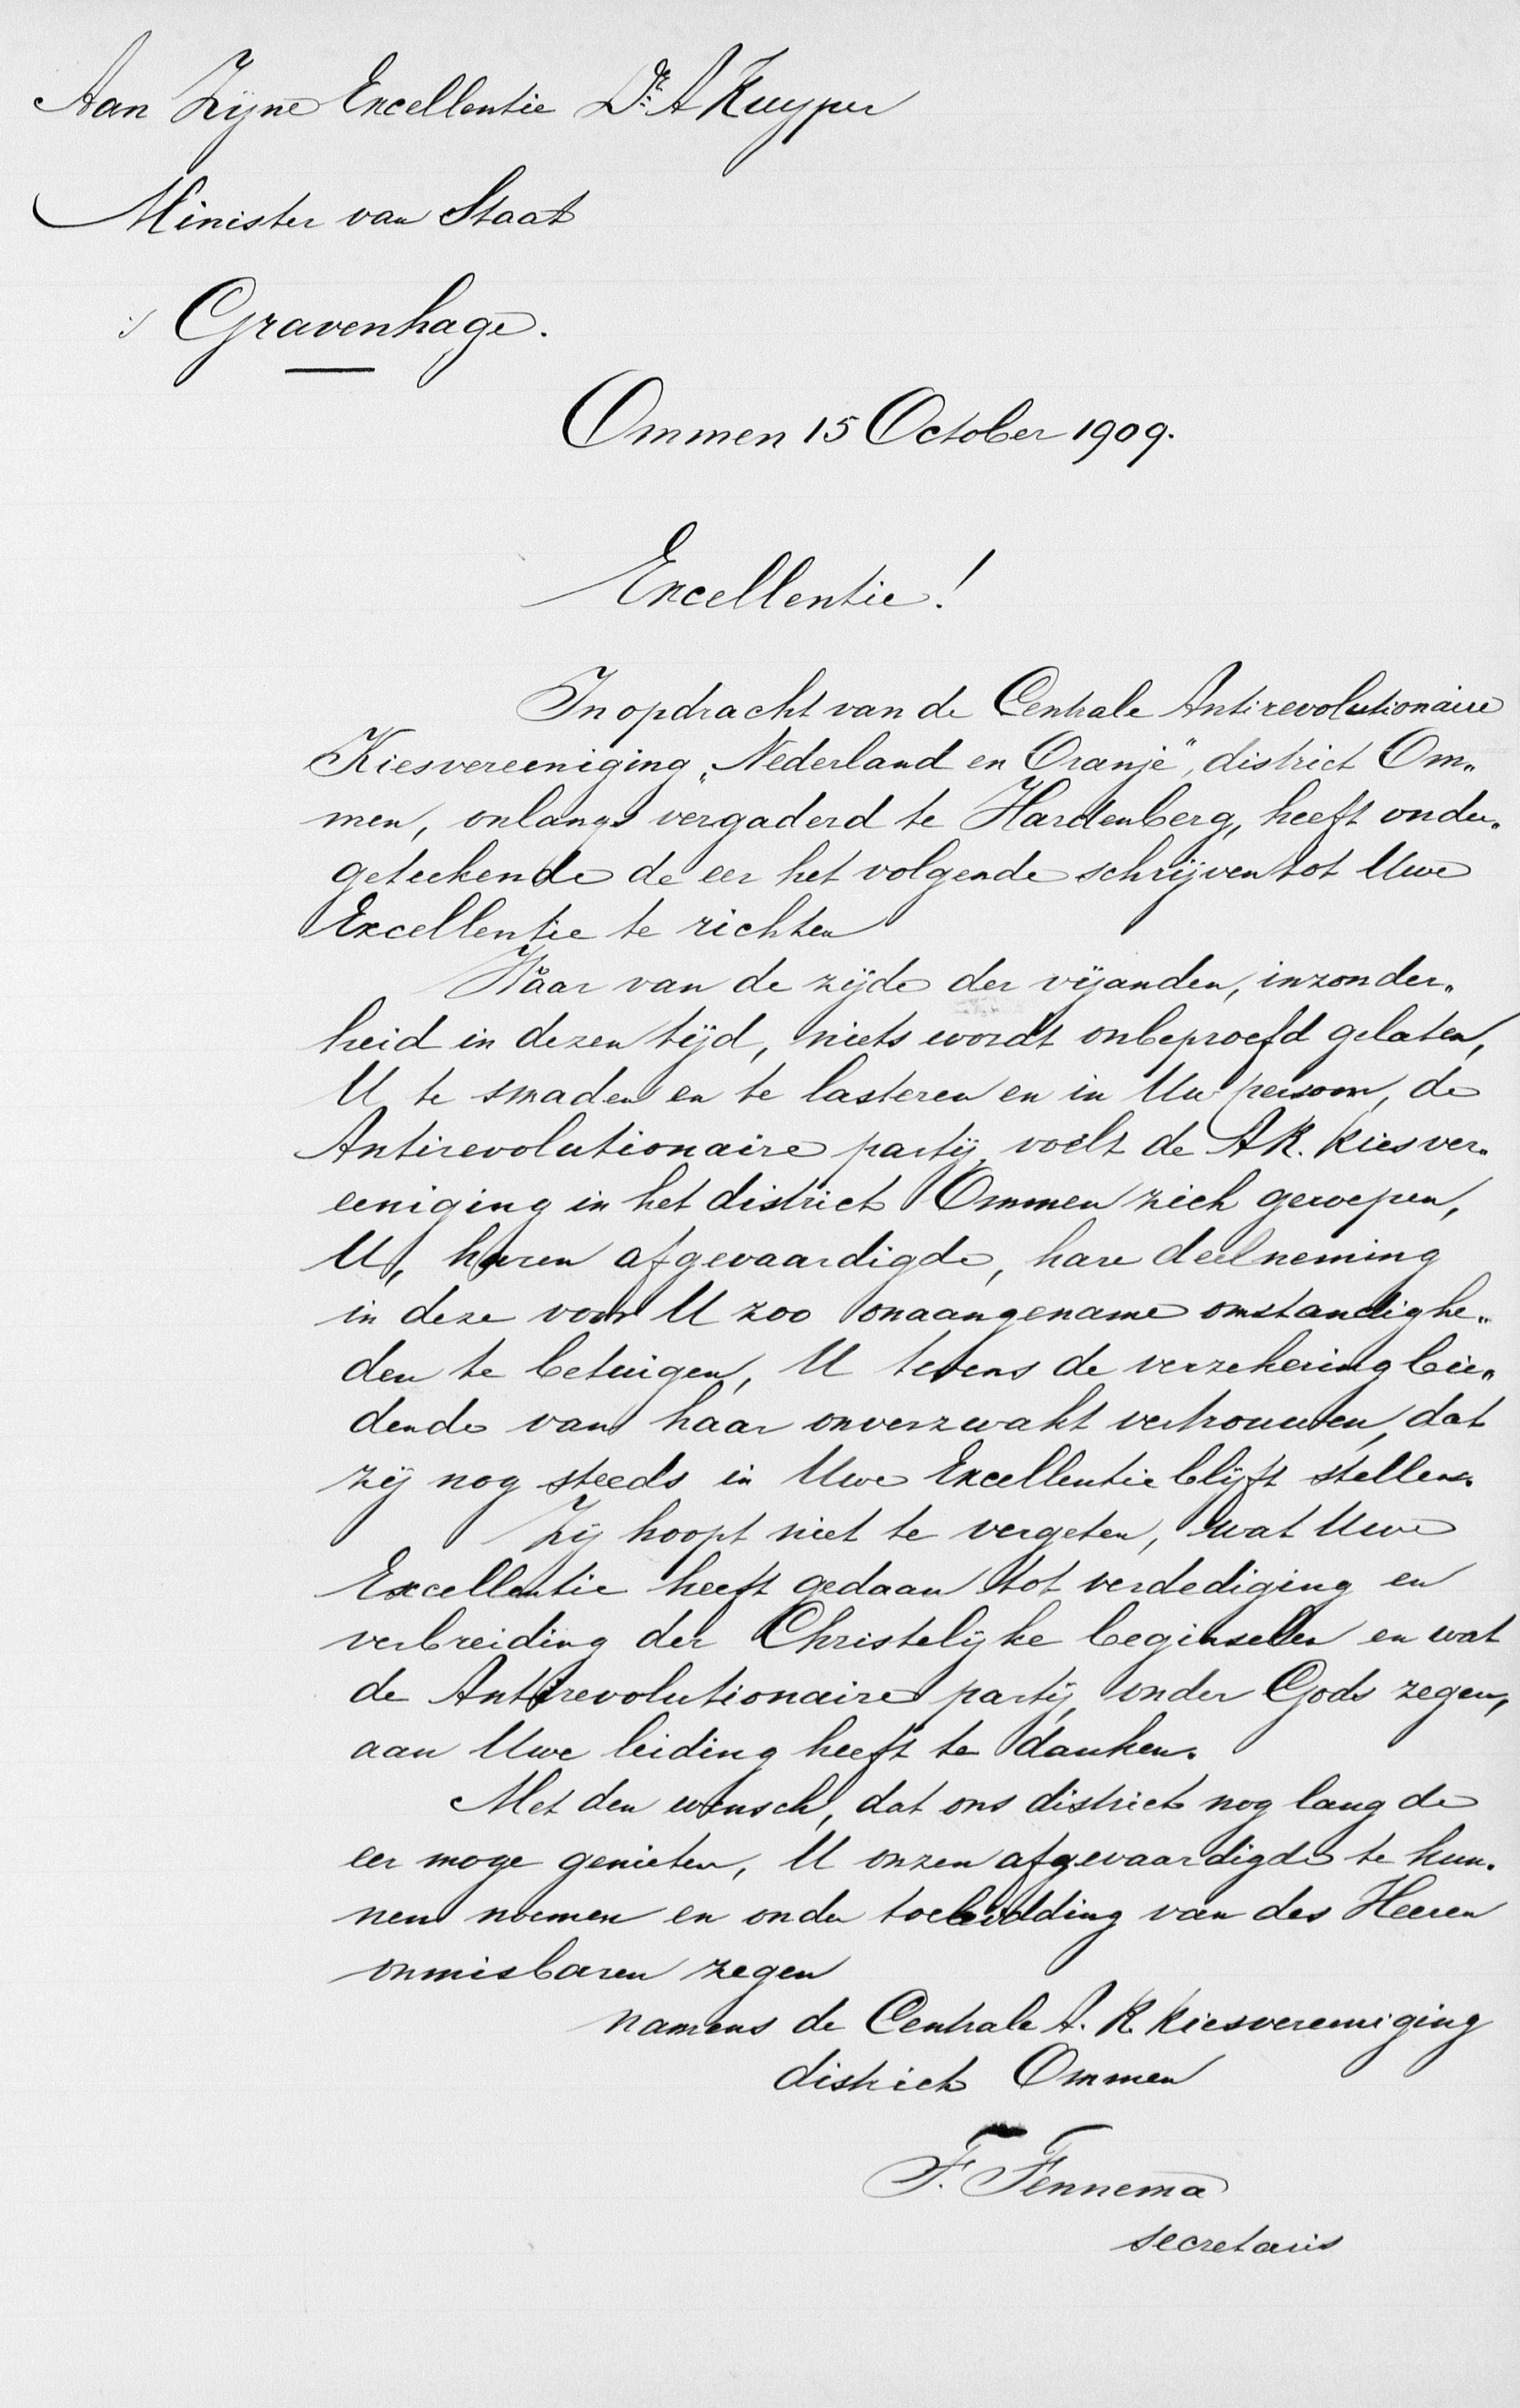 Aan Zijne Excellentie Dr. A Kuyper
Minister van Staat
's Gravenhage.
Ommen 15 October 1909.
Excellentie!
In opdracht van de Centrale Antirevolutionaire
Kiesvereeniging „Nederland en Oranje", district Om„
men, onlangs vergaderd te Hardenberg, heeft onder„
geteekende de eer het volgende schrijven tot Uwe
Excellentie te richten
Waar van de zijde der vijanden, inzonder„
heid in dezen tijd, niets wordt onbeproefd gelaten,
U te smaden en te lasteren en in Uw persoon, de
Antirevolutionaire partij, voelt de AR. Kiesver„
eeniging in het district Ommen zich geroepen,
U, haren afgevaardigde, hare deelneming
in deze voor U zoo onaangename omstandighe„
den te betuigen, U tevens de verzekering bie„
dende van haar onverzwakt vertrouwen, dat
zij nog steeds in Uwe Excellentie blijft stellen.
Zij hoopt niet te vergeten, wat Uwe
Excellentie heeft gedaan tot verdediging en
verbreiding der Christelijke beginselen en wat
de Antirevolutionaire partij, onder Gods zegen,
aan Uwe leiding heeft te danken.
Met den wensch, dat ons district nog lang de
eer moge genieten, U onzen afgevaardigde te kun„
nen noemen en onder toebidding van des Heeren
onmisbaren zegen
namens de Centrale A. R. Kiesvereeniging
district Ommen
F. Fennema
secretaris